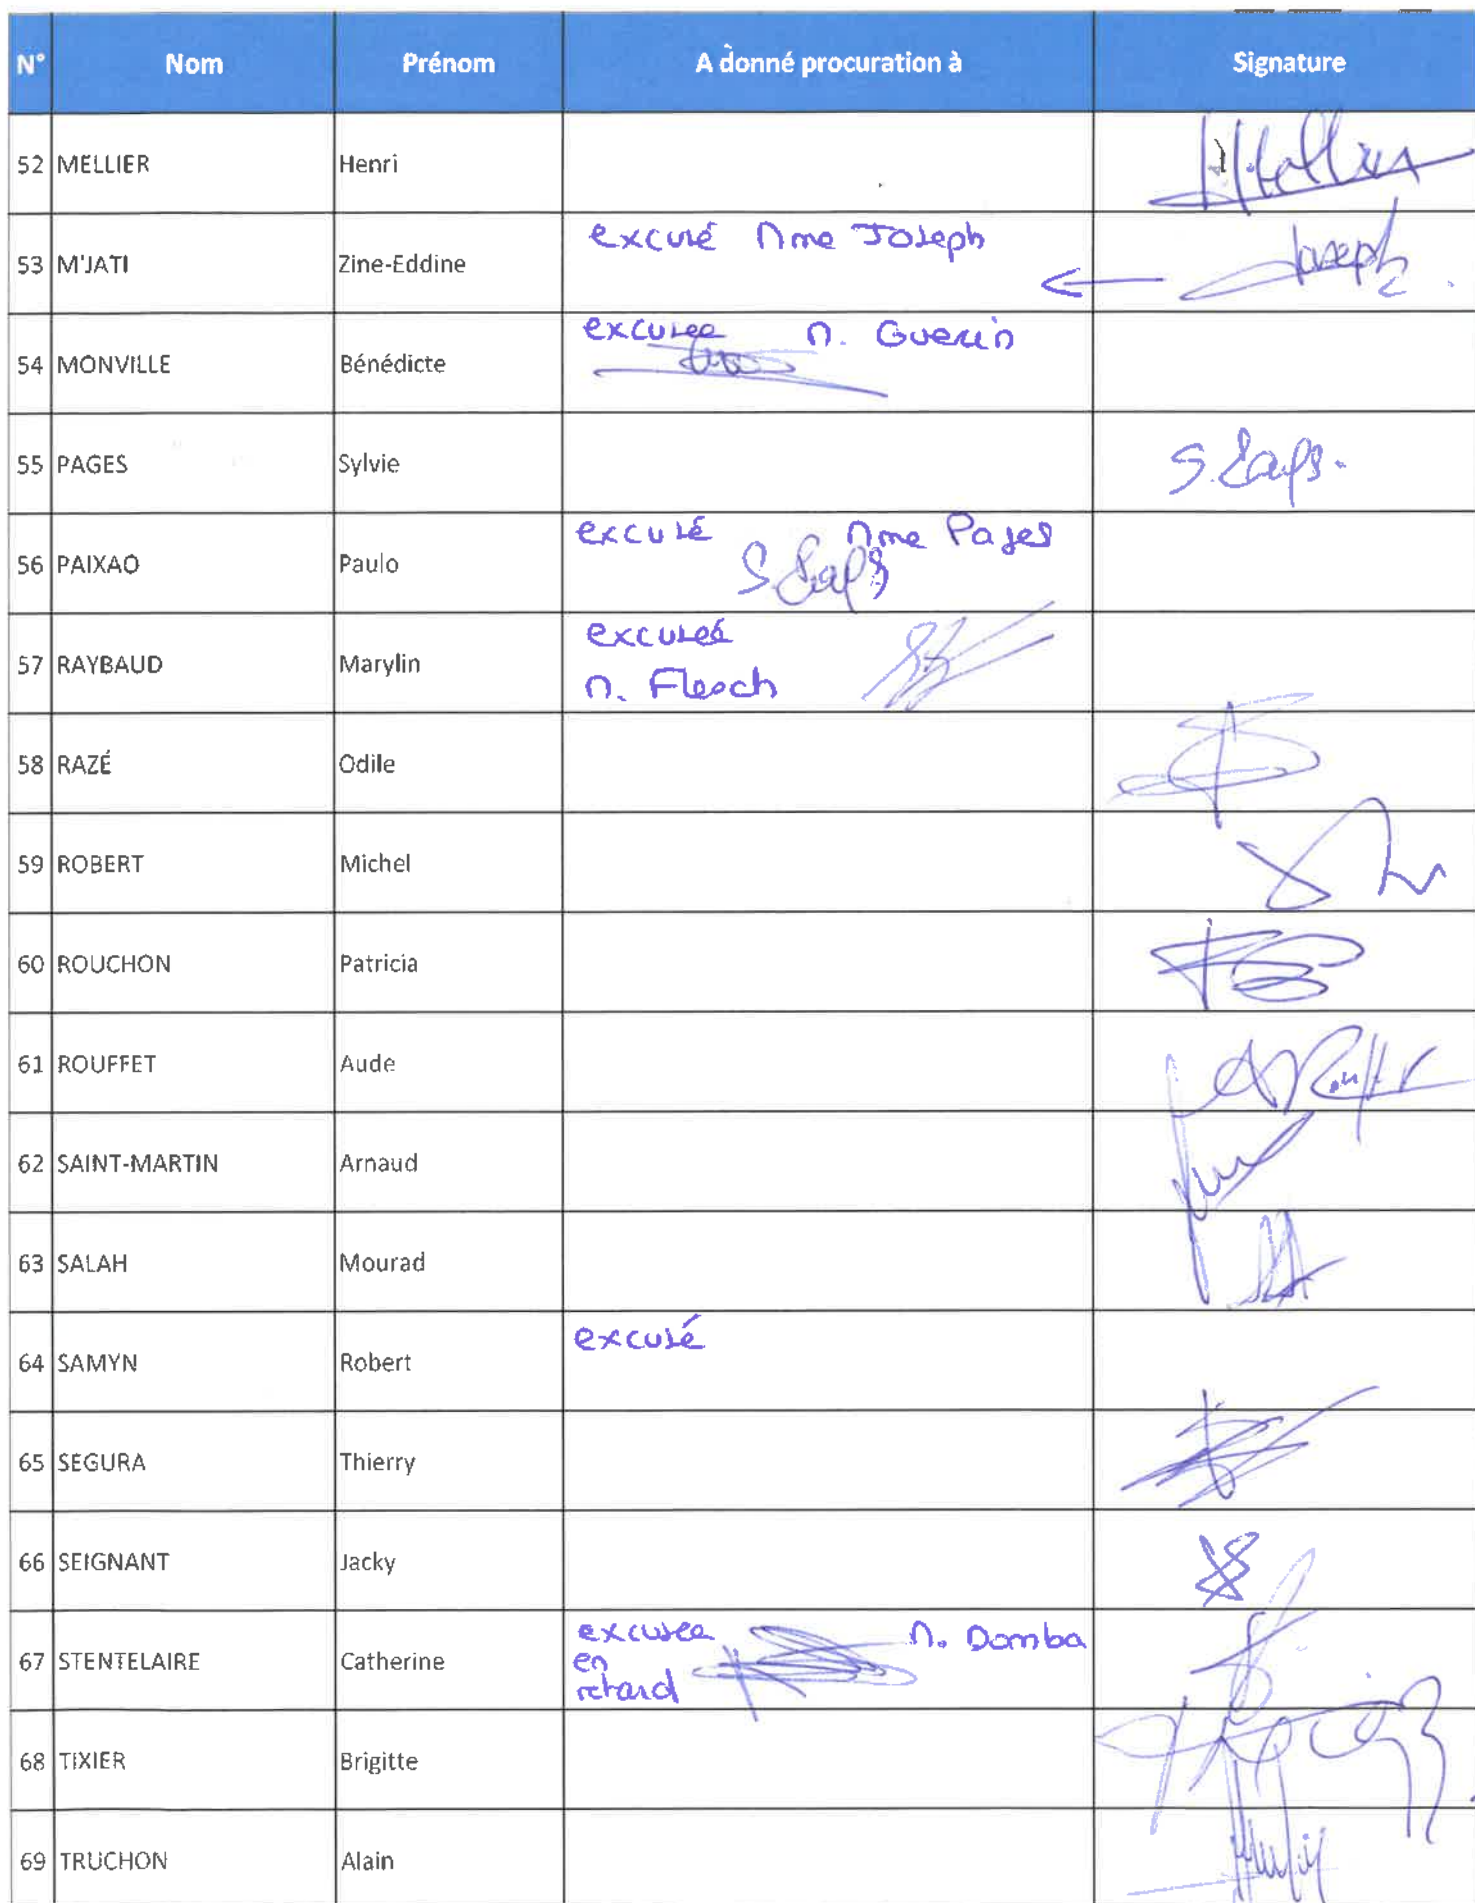 N° Nom Prénom A donné procuration à Signature
52 MELLIER Henri
53 M'JATI Zine-Eddine excusé Mme Joseph Joseph
54 MONVILLE Bénédicte excusée M. Guerin
55 PAGES Sylvie
56 PAIXAO Paulo excusé Mme Pages
57 RAYBAUD Marylin excusée
M. Flesch
58 RAZÉ Odile
59 ROBERT Michel
60 ROUCHON Patricia
61 ROUFFET Aude
62 SAINT-MARTIN Arnaud
63 SALAH Mourad
64 SAMYN Robert excusé
65 SEGURA Thierry
66 SEIGNANT Jacky
67 STENTELAIRE Catherine excusée M. Domba
en
retard
68 TIXIER Brigitte
69 TRUCHON Alain